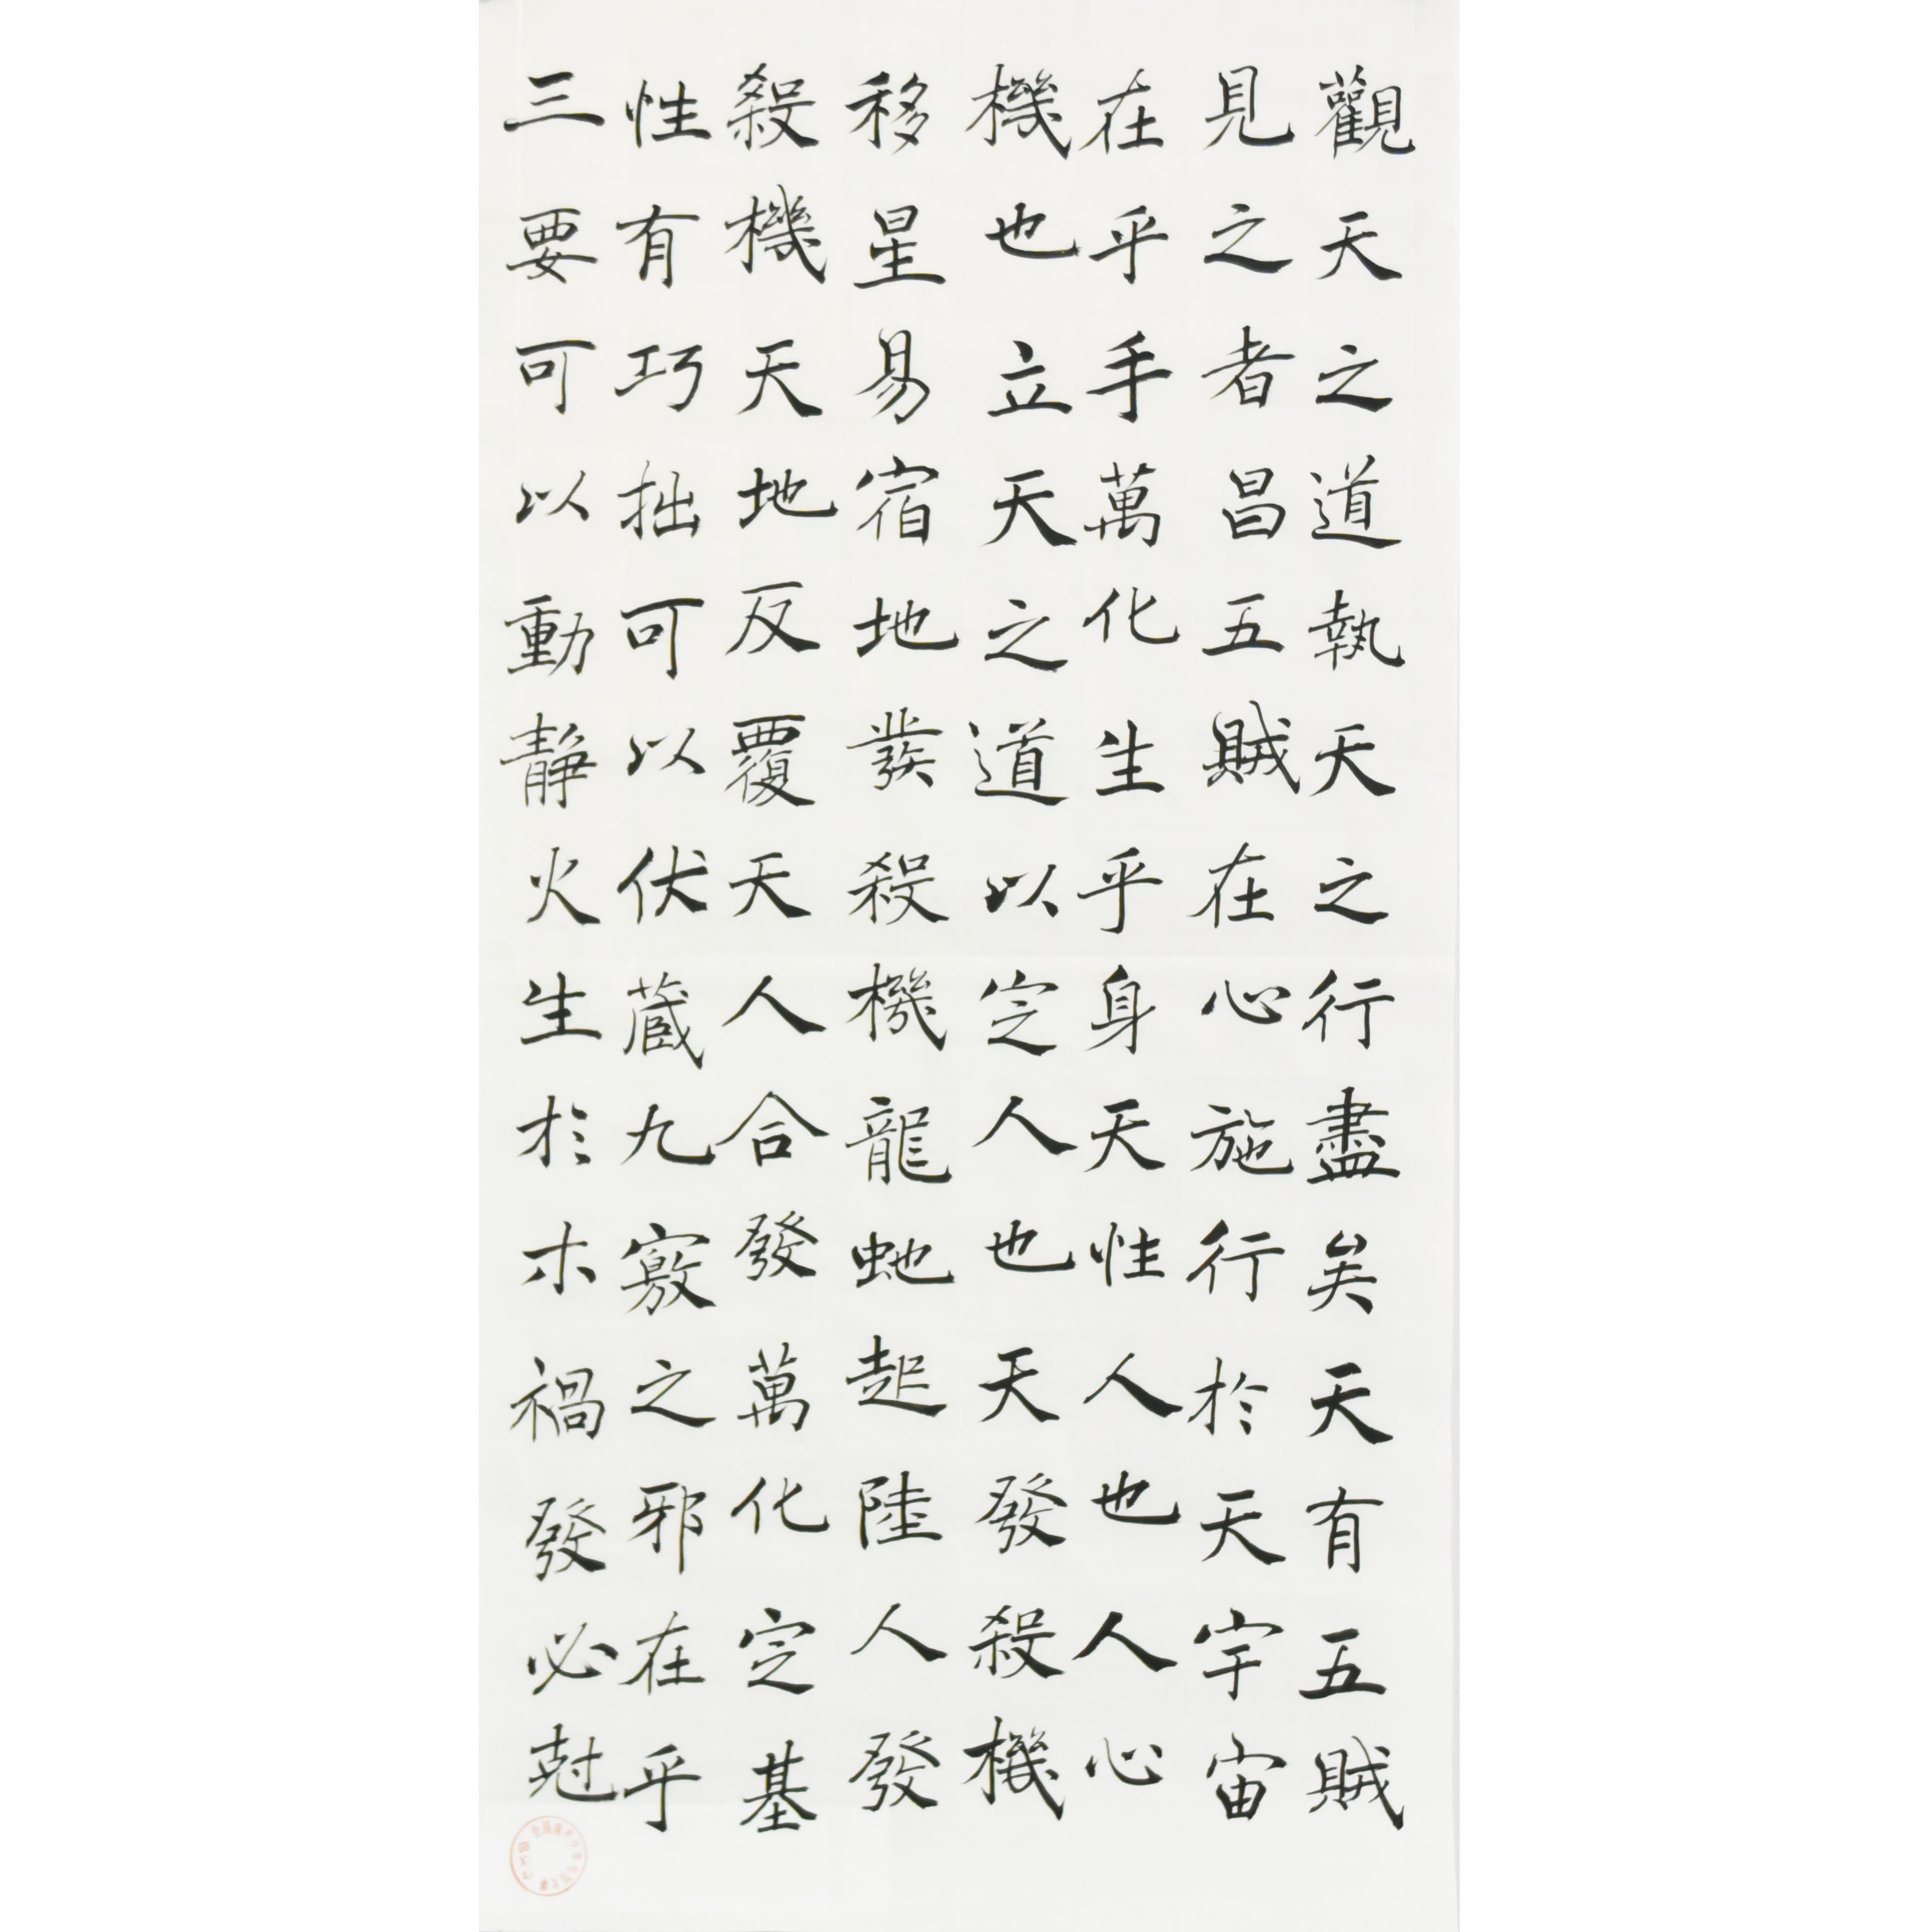 觀天之道執天之行盡矣天有五賊
見之者昌五賊在心施行於天宇宙
在乎手萬化生乎身天性人也人心
機也立天之道以定人也天發殺機
移星易宿地發殺機龍虵起陸人發
殺機天地反覆天人合發萬化定基
性有巧拙可以伏藏九竅之邪在乎
三要可以動靜火生於木禍發必尅